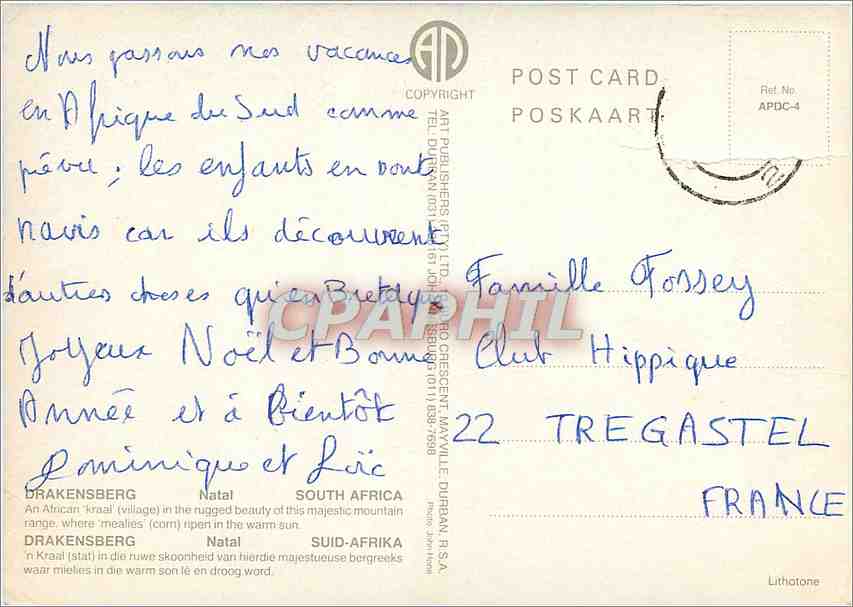 Nous passons nos vacances
en Afrique du Sud comme
prévu, les enfants en sont
ravis car ils découvrent
d'autres choses qu'en Bretagne
Joyeux Noël et Bonne
Année et à bientôt
Dominique et Loïc
DRAKENSBERG Natal SOUTH AFRICA
An African 'kraal' (village) in the rugged beauty of this majestic mountain
range, where 'mealies' (corn) ripen in the warm sun.
DRAKENSBERG Natal SUID-AFRIKA
'n Kraal (stat) in die ruwe skoonheid van hierdie majestueuse bergreeks
waar mielies in die warm son lê en droog word.
AP
COPYRIGHT
ART PUBLISHERS (PTY) LTD. CRESCENT, MAYVILLE, DURBAN, R.S.A.
TEL: DURBAN (031) JOHANNESBURG (011) 838-7698
Photo: John Hone
POST CARD
POSKAART
Ref. No.
APDC-4
Famille Fossey
Club Hippique
22 TREGASTEL
FRANCE
Lithotone
CPAPHIL